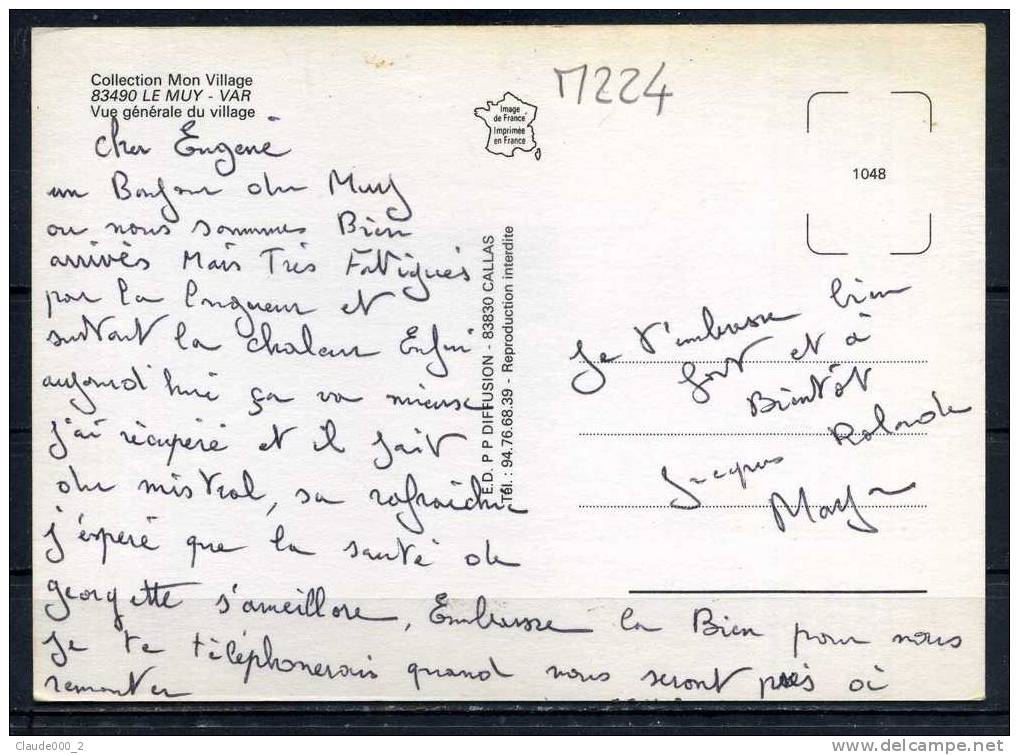 Collection Mon Village
83490 LE MUY - VAR
Vue générale du village
M224
Image
de France
Imprimée
en France
1048
Cher Eugène
un Bonjour du Muy
ou nous sommes Bien
arrivés Mais Très Fatigués
par la longueur et
surtout la chaleur Enfin
aujourd'hui ça va mieux
j'ai récupéré et il fait
du mistral, sa rafraichie
j'éspère que la santé de
georgette s'ameillore, Embrasse la Bien pour nous
je te téléphonerais quand nous seront près à
remonter
E.D. P P DIFFUSION - 83830 CALLAS
Tél. : 94.76.68.39 - Reproduction interdite
Je t'embrasse bien
fort et à
Bientôt
Jacques Rolande
May
Claude000_2
www.delcampe.net